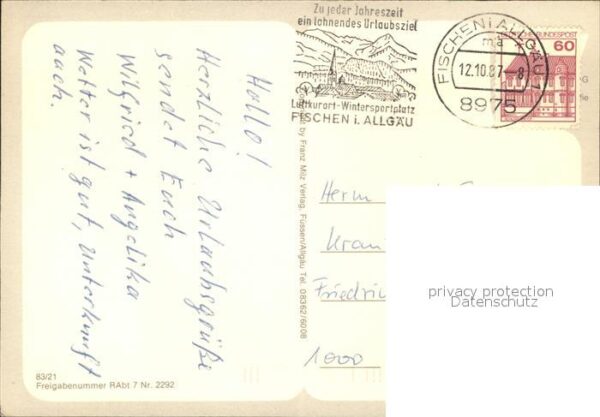 Zu jeder Jahreszeit
ein lohnendes Urlaubsziel
Luftkurort-Wintersportplatz
FISCHEN i. ALLGÄU
FISCHEN i ALLGÄU 1
ma
12.10.87-8
8975
DEUTSCHE BUNDESPOST
60
Hallo!
Herzliche Urlaubsgrüße
sendet Euch
Wilfried + Angelika
Wetter ist gut, Unterkunft
auch.
by Franz Milz Verlag, Füssen/Allgäu Tel. 08362/6008
Herrn
Kran
Friedric
1000
privacy protection
Datenschutz
83/21
Freigabenummer RAbt 7 Nr. 2292